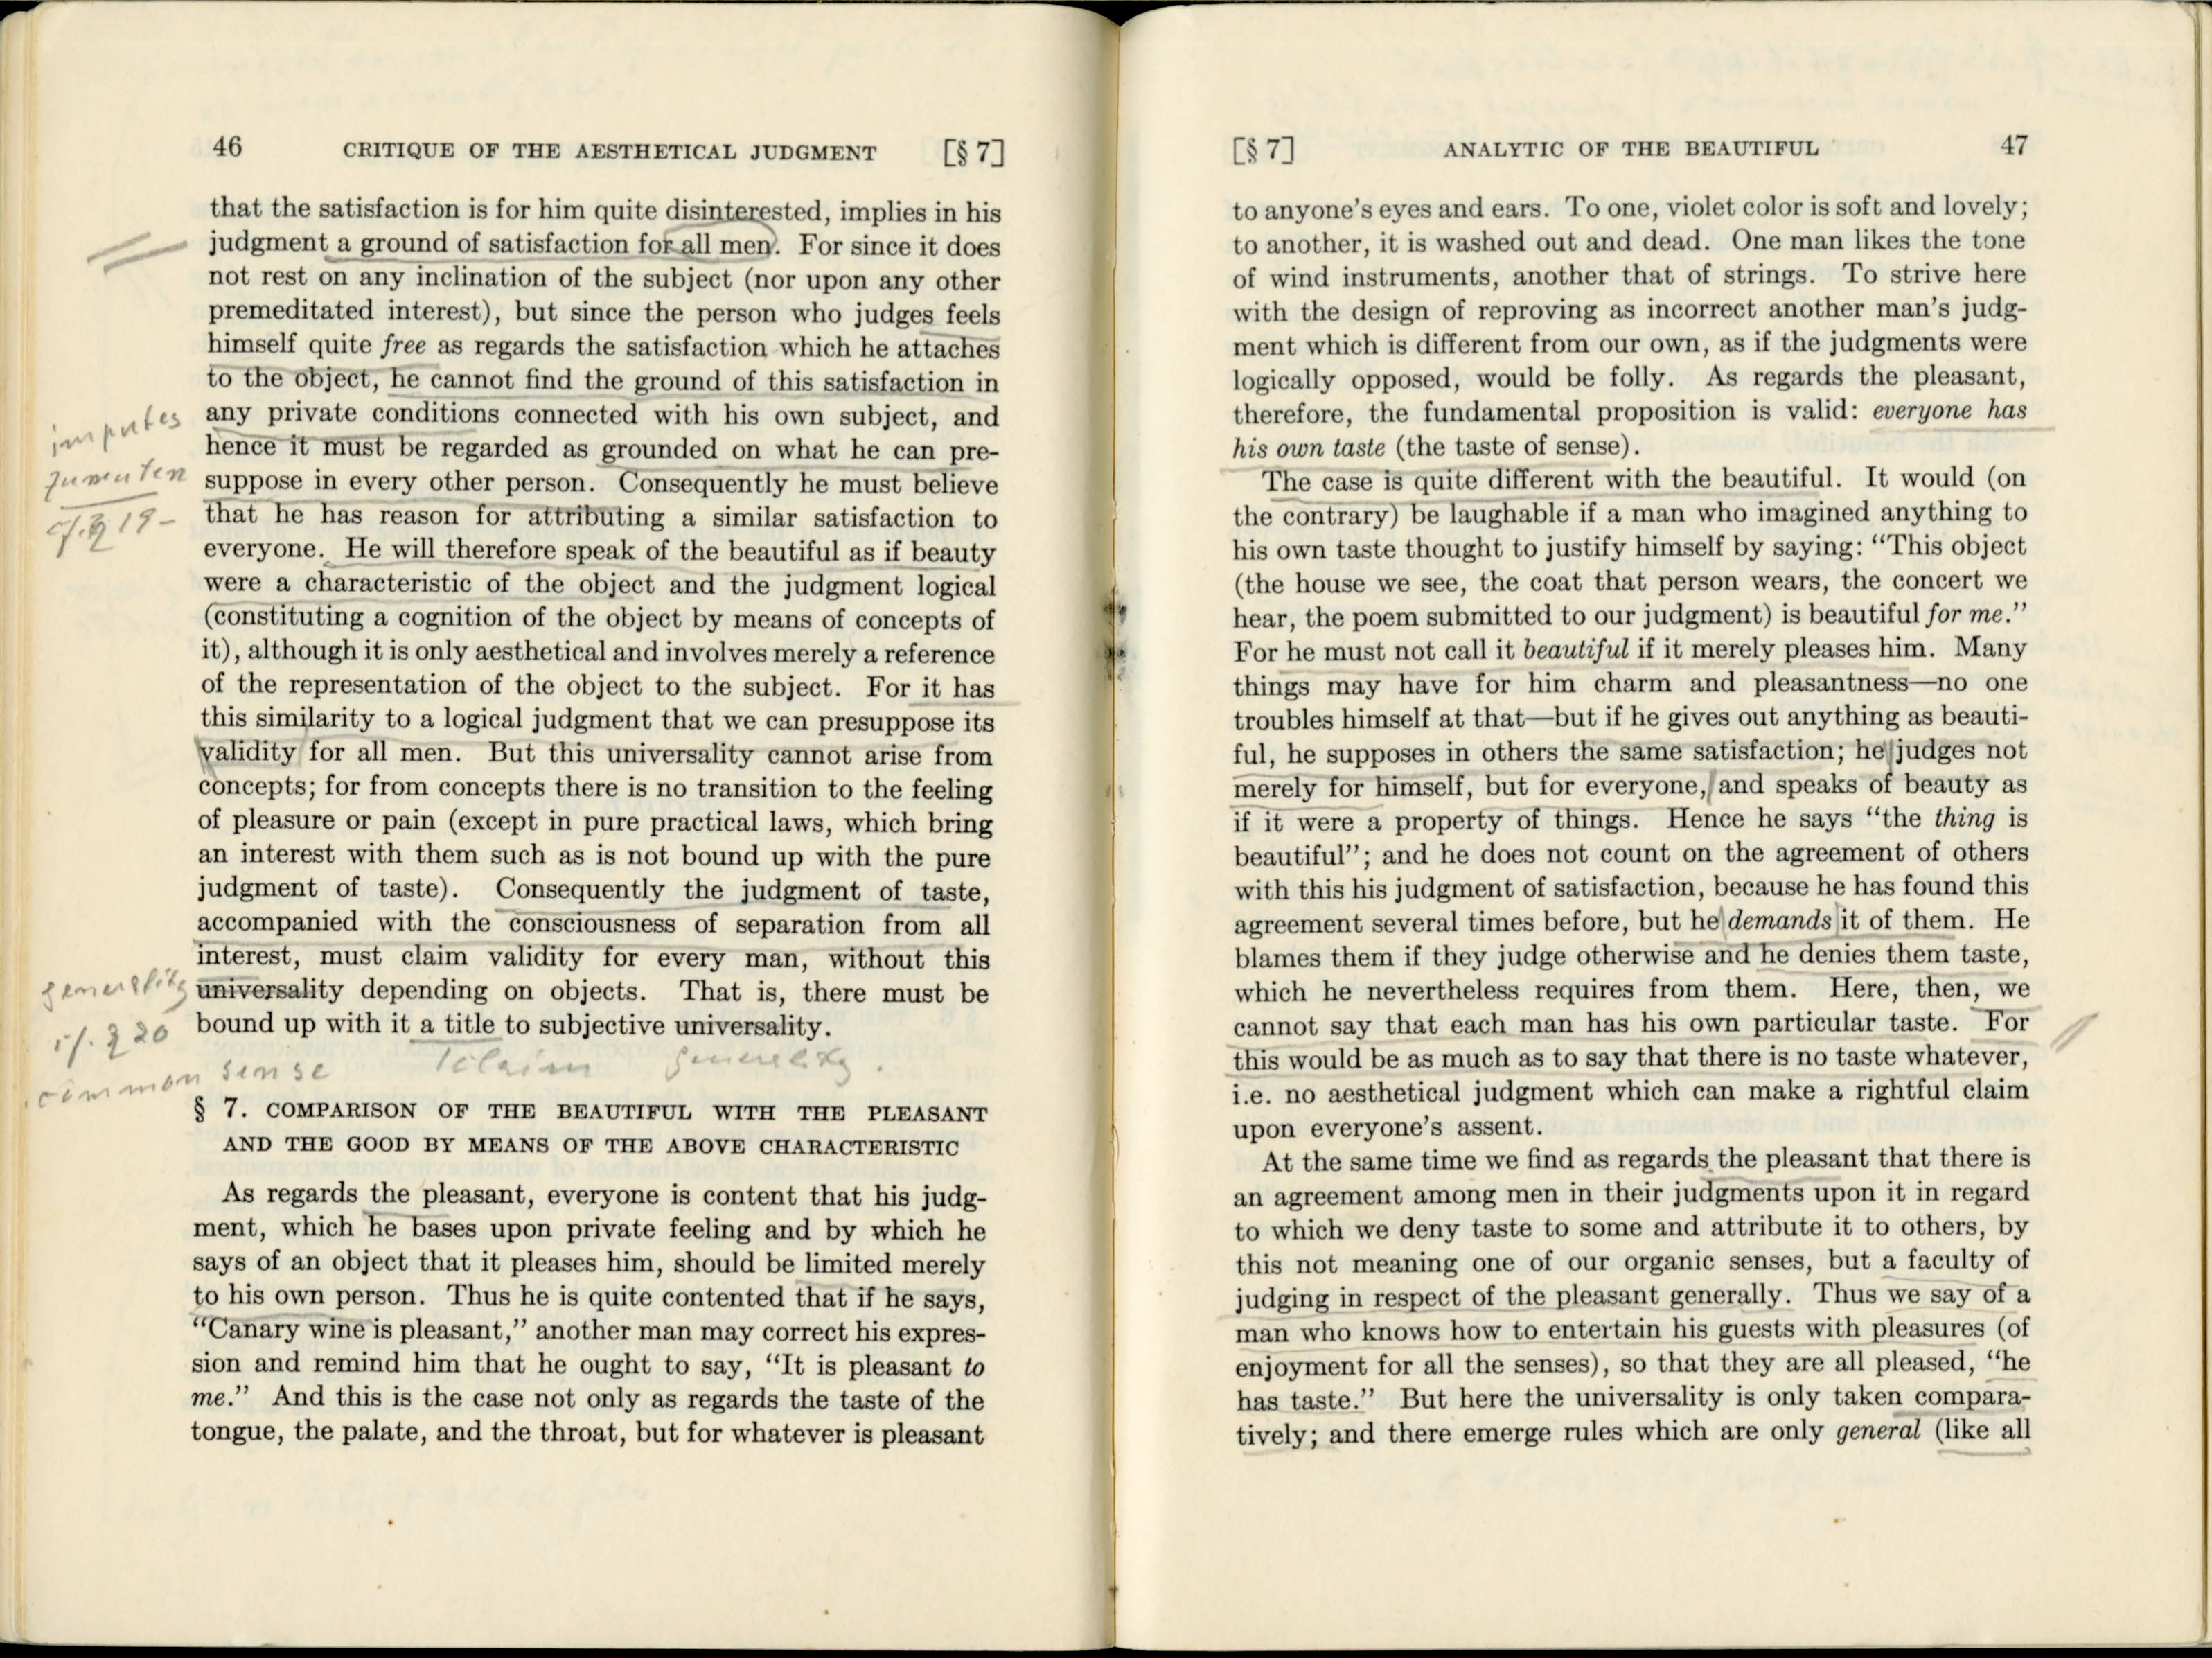 46 CRITIQUE OF THE AESTHETICAL JUDGMENT [§ 7]
that the satisfaction is for him quite disinterested, implies in his
judgment a ground of satisfaction for all men. For since it does
not rest on any inclination of the subject (nor upon any other
premeditated interest), but since the person who judges feels
himself quite free as regards the satisfaction which he attaches
to the object, he cannot find the ground of this satisfaction in
any private conditions connected with his own subject, and
imputes
hence it must be regarded as grounded on what he can pre-
zumuten
suppose in every other person. Consequently he must believe
cf. § 19-
that he has reason for attributing a similar satisfaction to
everyone. He will therefore speak of the beautiful as if beauty
were a characteristic of the object and the judgment logical
(constituting a cognition of the object by means of concepts of
it), although it is only aesthetical and involves merely a reference
of the representation of the object to the subject. For it has
this similarity to a logical judgment that we can presuppose its
validity for all men. But this universality cannot arise from
concepts; for from concepts there is no transition to the feeling
of pleasure or pain (except in pure practical laws, which bring
an interest with them such as is not bound up with the pure
judgment of taste). Consequently the judgment of taste,
accompanied with the consciousness of separation from all
interest, must claim validity for every man, without this
generality
universality depending on objects. That is, there must be
cf. § 20
bound up with it a title to subjective universality.
common sense
to claim generality.
§ 7. COMPARISON OF THE BEAUTIFUL WITH THE PLEASANT
AND THE GOOD BY MEANS OF THE ABOVE CHARACTERISTIC
As regards the pleasant, everyone is content that his judg-
ment, which he bases upon private feeling and by which he
says of an object that it pleases him, should be limited merely
to his own person. Thus he is quite contented that if he says,
“Canary wine is pleasant,” another man may correct his expres-
sion and remind him that he ought to say, “It is pleasant to
me.” And this is the case not only as regards the taste of the
tongue, the palate, and the throat, but for whatever is pleasant
[§ 7] ANALYTIC OF THE BEAUTIFUL 47
to anyone’s eyes and ears. To one, violet color is soft and lovely;
to another, it is washed out and dead. One man likes the tone
of wind instruments, another that of strings. To strive here
with the design of reproving as incorrect another man’s judg-
ment which is different from our own, as if the judgments were
logically opposed, would be folly. As regards the pleasant,
therefore, the fundamental proposition is valid: everyone has
his own taste (the taste of sense).
The case is quite different with the beautiful. It would (on
the contrary) be laughable if a man who imagined anything to
his own taste thought to justify himself by saying: “This object
(the house we see, the coat that person wears, the concert we
hear, the poem submitted to our judgment) is beautiful for me.”
For he must not call it beautiful if it merely pleases him. Many
things may have for him charm and pleasantness—no one
troubles himself at that—but if he gives out anything as beauti-
ful, he supposes in others the same satisfaction; he judges not
merely for himself, but for everyone, and speaks of beauty as
if it were a property of things. Hence he says “the thing is
beautiful”; and he does not count on the agreement of others
with this his judgment of satisfaction, because he has found this
agreement several times before, but he demands it of them. He
blames them if they judge otherwise and he denies them taste,
which he nevertheless requires from them. Here, then, we
cannot say that each man has his own particular taste. For
this would be as much as to say that there is no taste whatever,
i.e. no aesthetical judgment which can make a rightful claim
upon everyone’s assent.
At the same time we find as regards the pleasant that there is
an agreement among men in their judgments upon it in regard
to which we deny taste to some and attribute it to others, by
this not meaning one of our organic senses, but a faculty of
judging in respect of the pleasant generally. Thus we say of a
man who knows how to entertain his guests with pleasures (of
enjoyment for all the senses), so that they are all pleased, “he
has taste.” But here the universality is only taken compara-
tively; and there emerge rules which are only general (like all